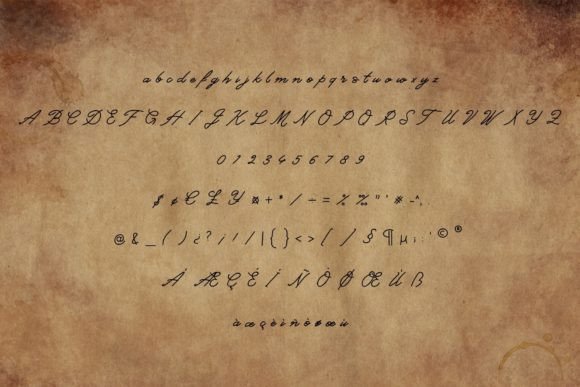 a b c d e f g h i j k l m n o p q r s t u v w x y z
A B C D E F G H I J K L M N O P Q R S T U V W X Y Z
0 1 2 3 4 5 6 7 8 9
$ ¢ € £ ¥ ¤ + * / ÷ = % ‰ " ' #
@ & _ ( ) ¿ ? ¡ ! / | { } < > [ / § ¶ µ ; : ' © ®
Á Æ Ç È Í Ñ Ò Ø Œ Ü ß
à æ ç è í ñ ò ø œ ù